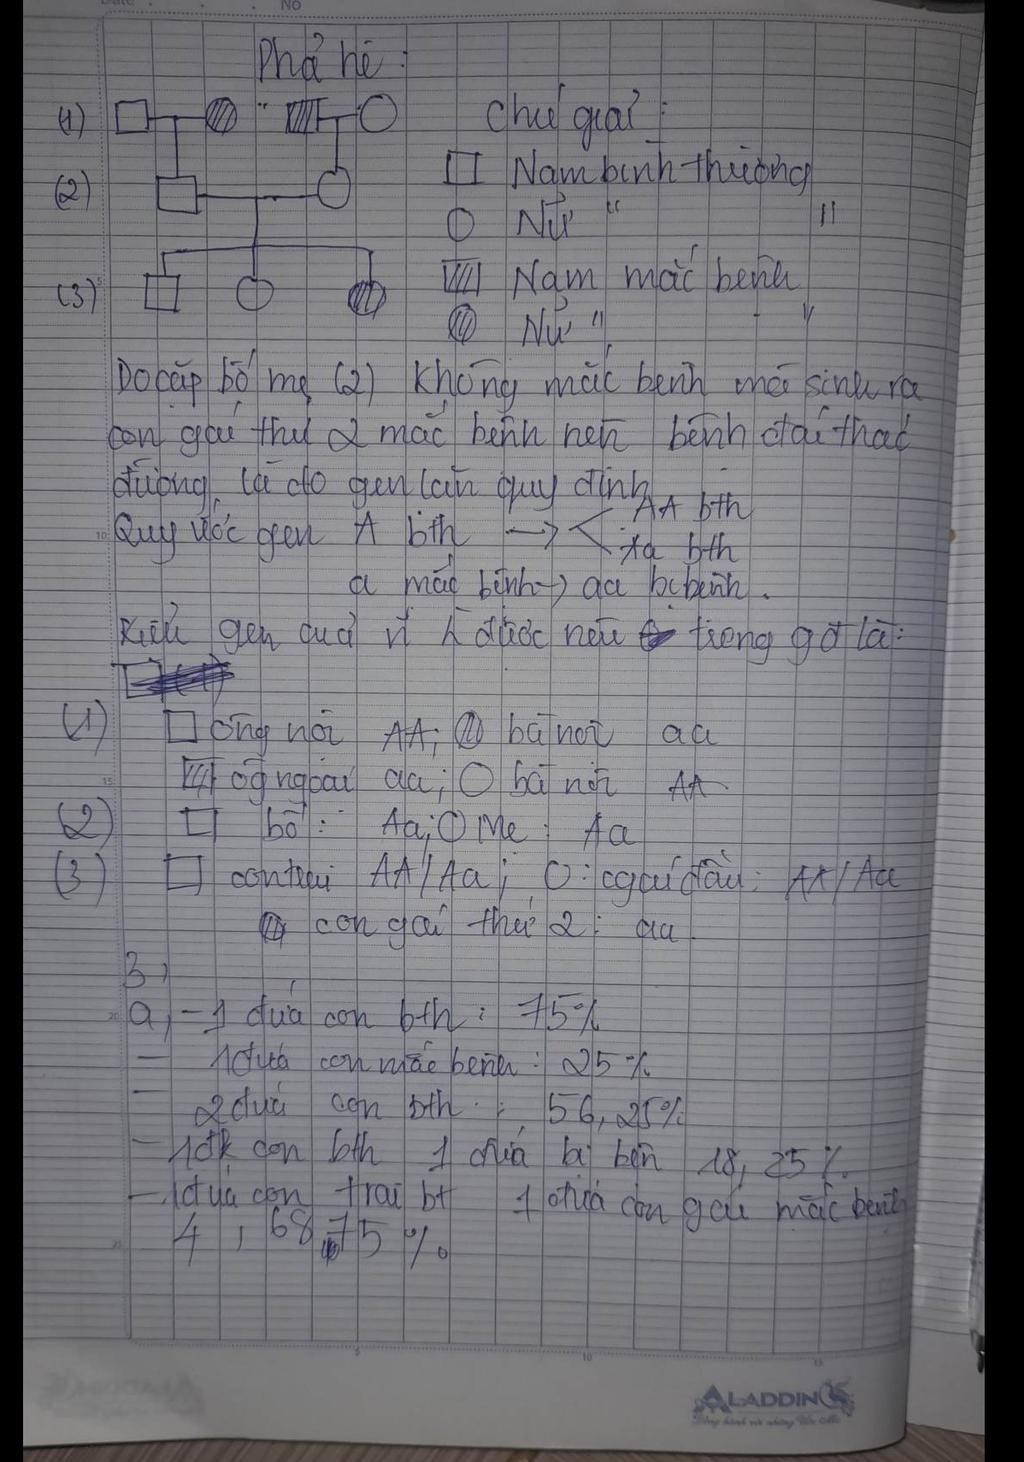 No
Phả hệ :
(1) Chú giải :
□ Nam bình thường
(2) ○ Nữ " "
(3) Nam mắc bệnh
Nữ " "
Do cặp bố mẹ (2) không mắc bệnh mà sinh ra
con gái thứ 2 mắc bệnh nên bệnh đái tháo
đường là do gen lặn quy định
Quy ước gen A bth → < AA bth
Aa bth
a mắc bệnh → aa bị bệnh .
Kiểu gen của vì được nêu trong gđ là:
(1) □ ông nội AA; bà nội aa
ôg ngoại aa; ○ bà nội AA
(2) □ bố : Aa; ○ Mẹ : Aa
(3) □ con trai AA/Aa; ○ : cgái đầu: AA/Aa
con gái thứ 2 : aa
3,
a, - 1 đứa con bth : 75%
- 1 đứa con mắc bệnh : 25%
- 2 đứa con bth : 56,25%
- 1 con bth 1 đứa bị bện 18,75%
- 1 đứa con trai bt 1 đứa con gái mắc bệnh
4,6875 %
5 10 15 20
5 10 15
ALADDIN